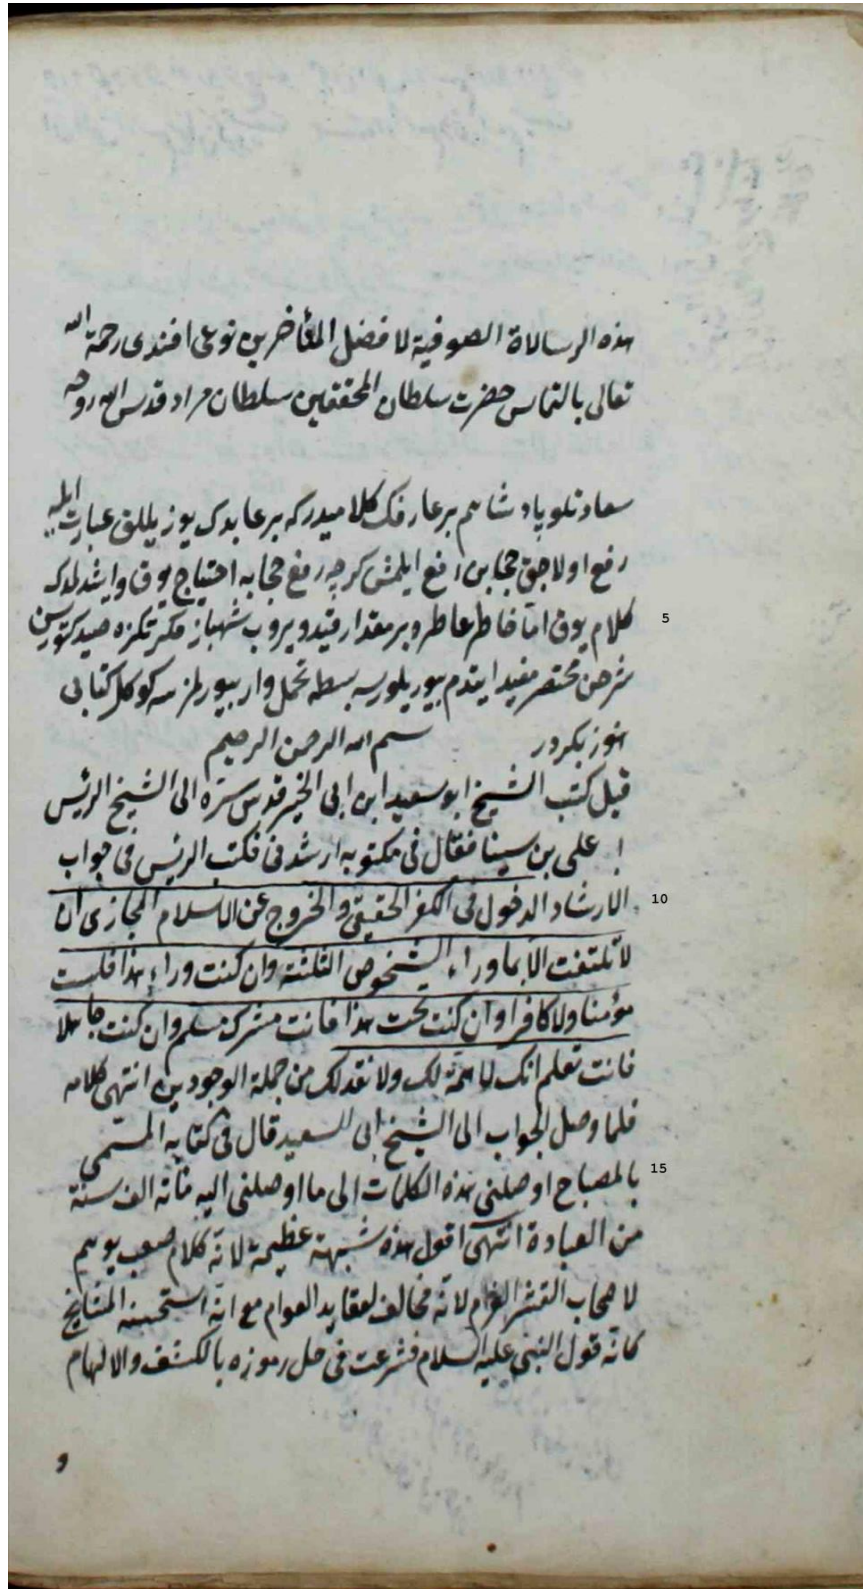 هذه الرسالاة الصوفية لافضل المتأخرين نوعى افندى رحمة الله
تعالى بالتماس حضرت سلطان المحققين سلطان مراد قدس الله روحه
سعادتلو پادشاهم بر عارفك كلاميدركه بر عابدك يوز ييللق عبارت ايله
رفع اولاجق حجابن رفع ايلمش كرچه رفع حجابه احتياج يوق وايشدلمدك
5
كلام يوق اما خاطر عاطر و بر مقدار قيد ويروب شهباز فكرتكزه صيد كتورسن
شرحن مختصر مفيد ايتدم بيوريلورسه بسطه تحمل وار بيورلمزسه كوكل كتابى
هنوز بكردر بسم الله الرحمن الرحيم
قيل كتب الشيخ ابو سعيد ابن ابى الخير قدس سره الى الشيخ الرئيس
على بن سينا فقال فى مكتوبه ارشدنى فكتب الرئيس فى جواب
10
الارشاد الدخول فى الكفر الحقيقى والخروج عن الاسلام المجازى ان
لا تلتفت الا بما وراء الشخوص الثلثة وان كنت وراء هذا فلست
مؤمنا ولا كافرا وان كنت تحت هذا فانت مشرك مسلم وان كنت جاهلا
فانت تعلم انك لا همة لك ولا نقدلك من جملة الوجودين انتهى كلامه
فلما وصل الجواب الى الشيخ ابى السعيد قال فى كتابه المسمى
15
بالمصباح اوصلنى هذه الكلمات الى ما اوصلنى اليه مأته الف سنة
من العبادة انتهى اقول هذه شبهة عظيمة لانه كلام صعب يوهم
لاصحاب القشر لانه مخالف لعقايد العوام مع انه استحسنه المشايخ
كانه قول النبى عليه السلام فشرعت فى حل رموزه بالكشف والالهام
و